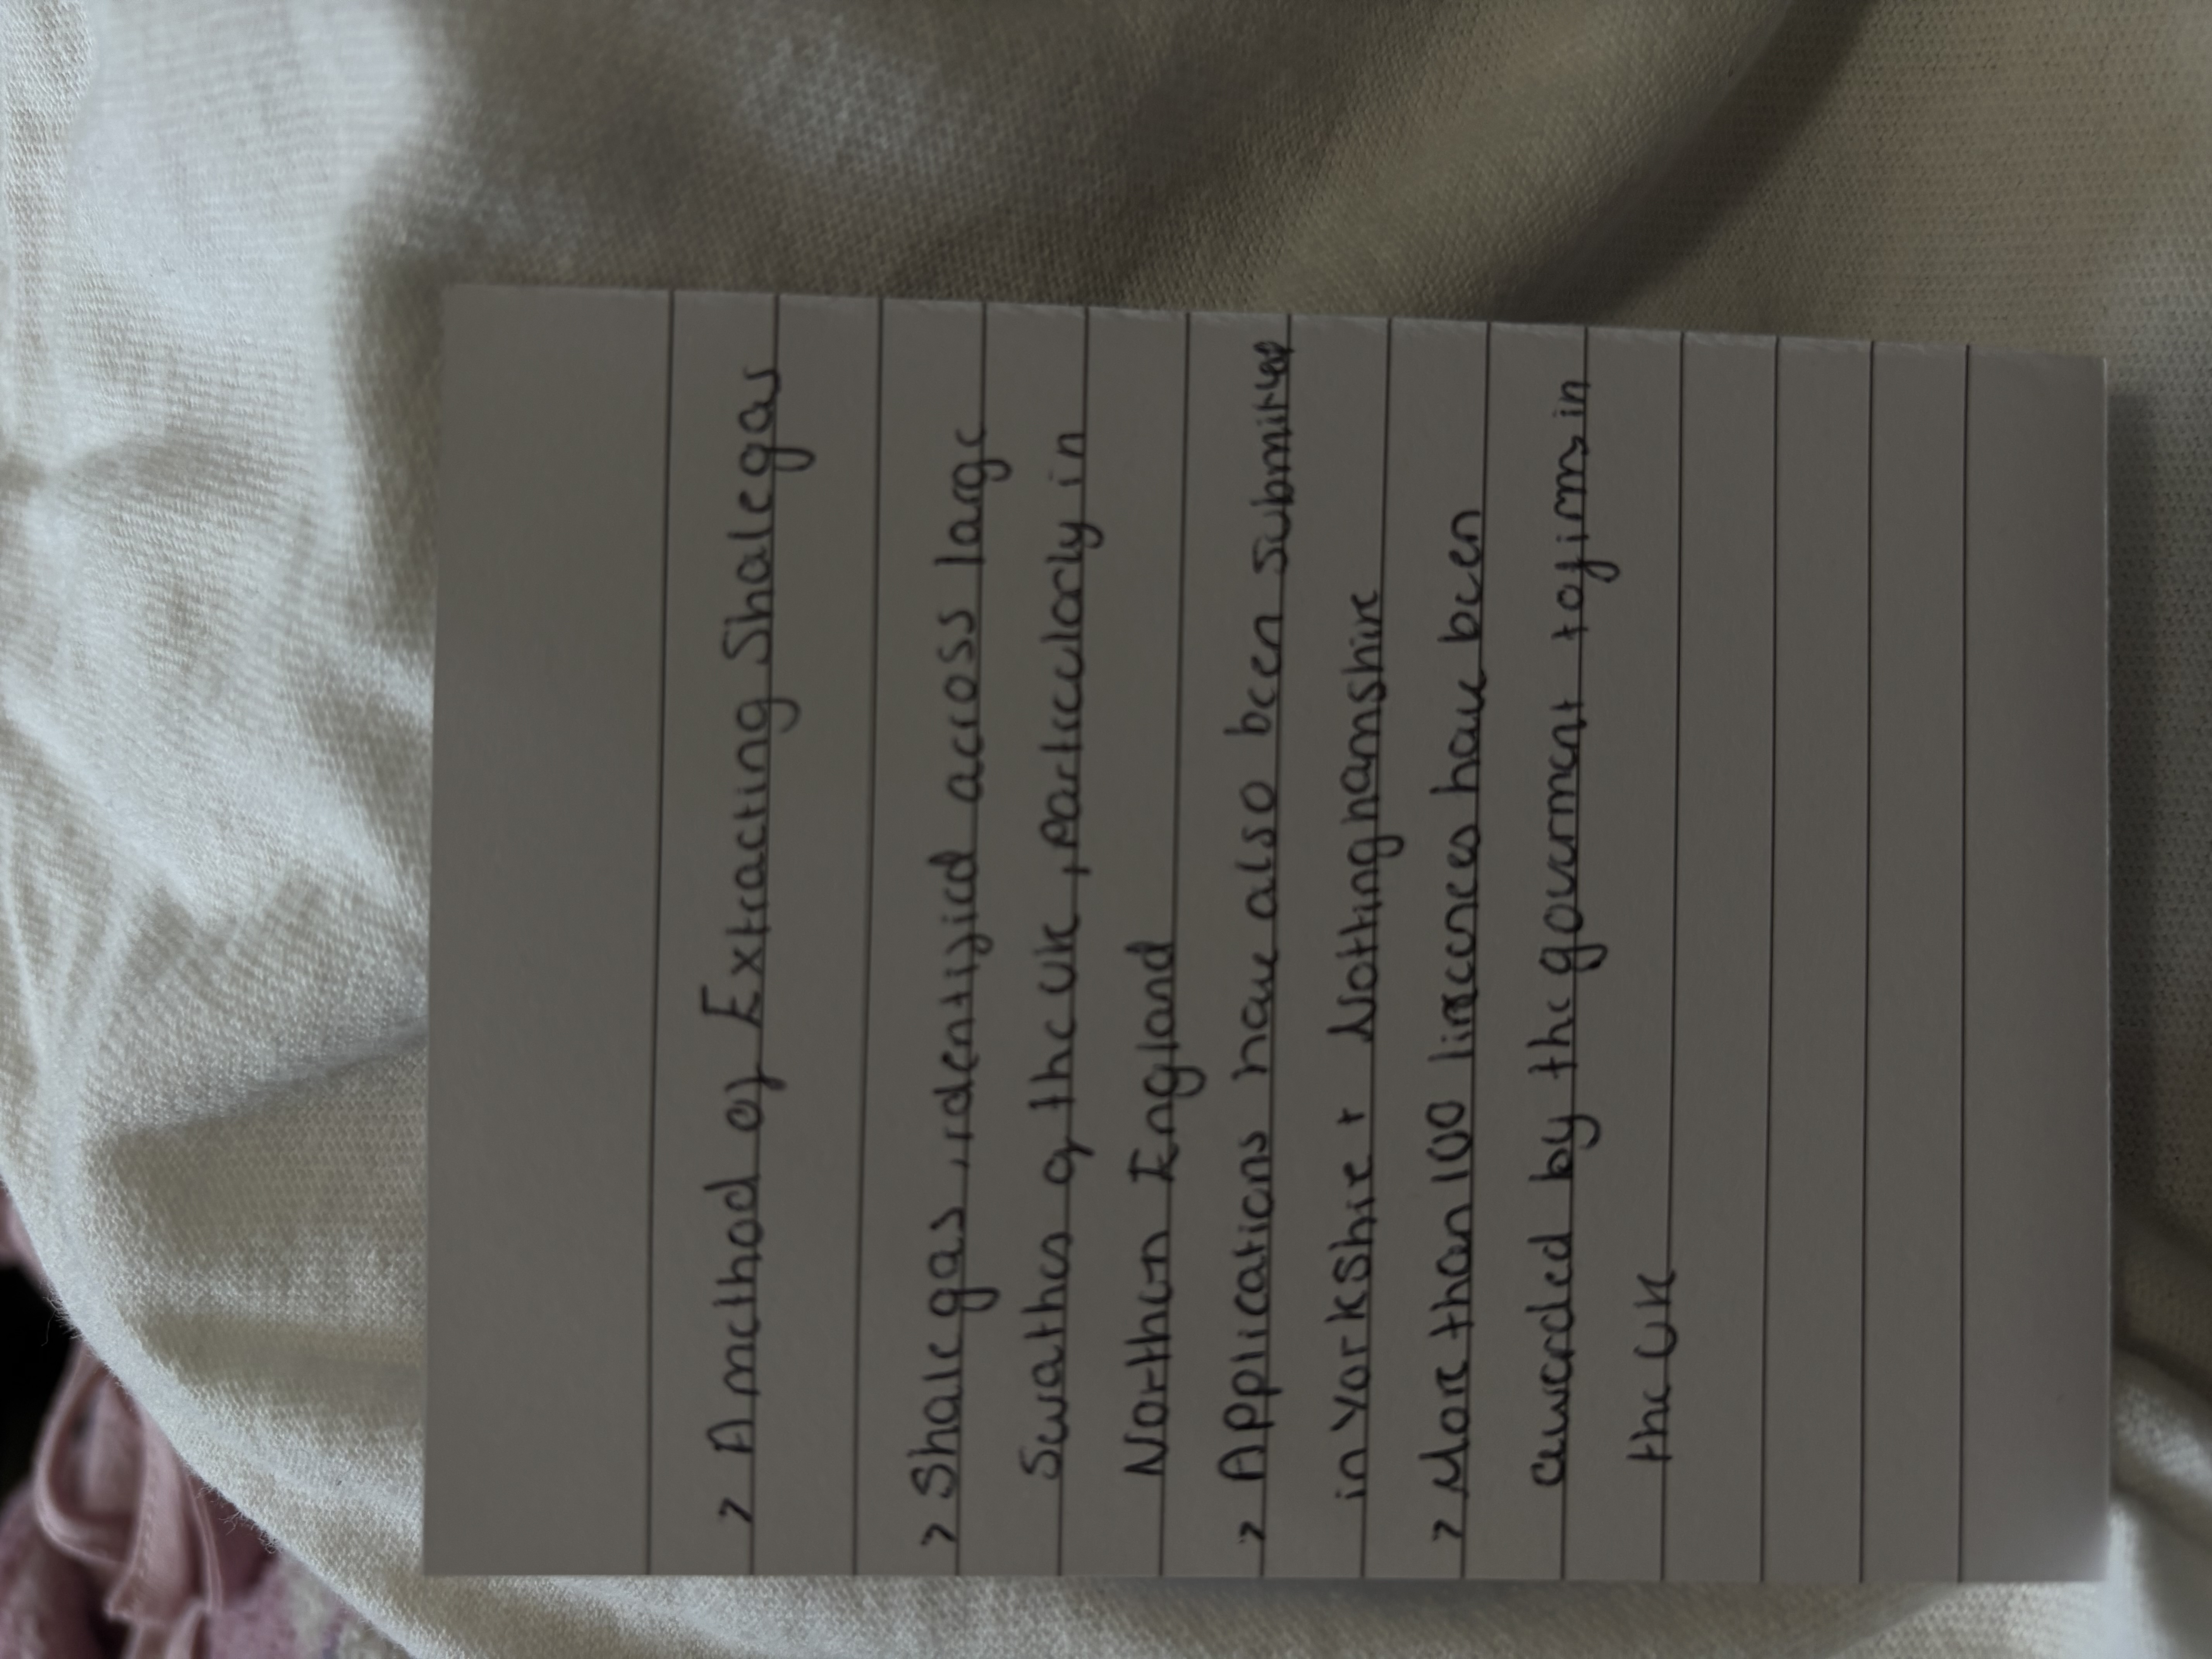 > A method of Extracting Shale gas
> Shale gas, identified across large
Swathes of the UK, particularly in
Northen England
> Applications have also been submitted
in Yorkshire + Nottinghamshire
> More than 100 lincences have been
awarded by the government to firms in
the UK